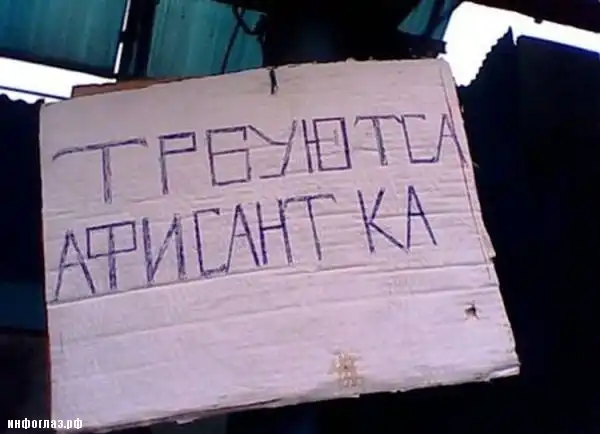 ТРБУЮТСА
АФИСАНТ КА
инфоглаз.рф